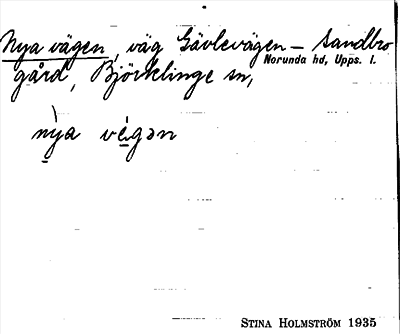 Nya vägen, väg Gävlevägen – Sandbro
Norunda hd, Upps. l.
gård, Björklinge sn,
nỳa végən
STINA HOLMSTRÖM 1935